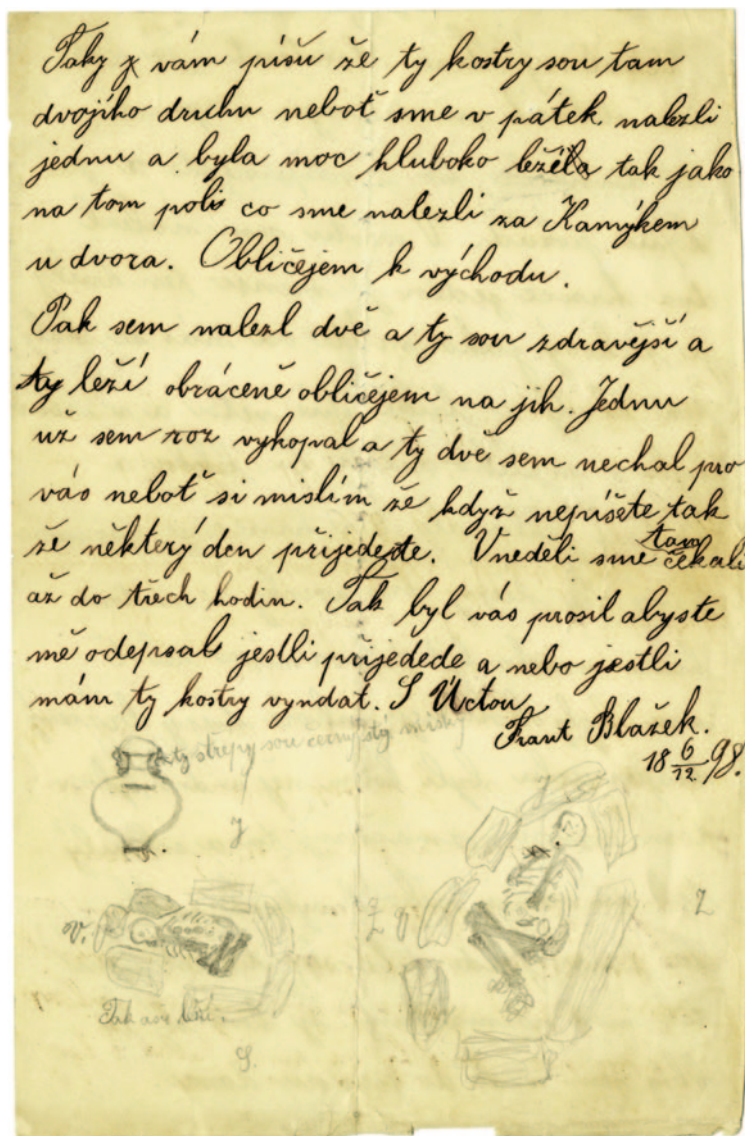 Taky vám píšu že ty kostry sou tam
dvojího druhu neboť sme v pátek nalezli
jednu a byla moc hluboko ležela tak jako
na tom poli co sme nalezli za Kamýkem
u dvora. Obličejem k východu.
Pak sem nalezl dvě a ty sou zdravější a
ty leží obráceně obličejem na jih. Jednu
už sem roz vykopal a ty dvě sem nechal pro
vás neboť si mislím že když nepíšete tak
že některý den přijedete. Vneděli sme tam čekali
až do třech hodin. Tak byl vás prosil abyste
mě odepsal jestli přijedede a nebo jestli
mám ty kostry vyndat. S Úctou
Frant Blažek.
18 6/12 98.
ty střepy sou černý
J
V.
Z
S.